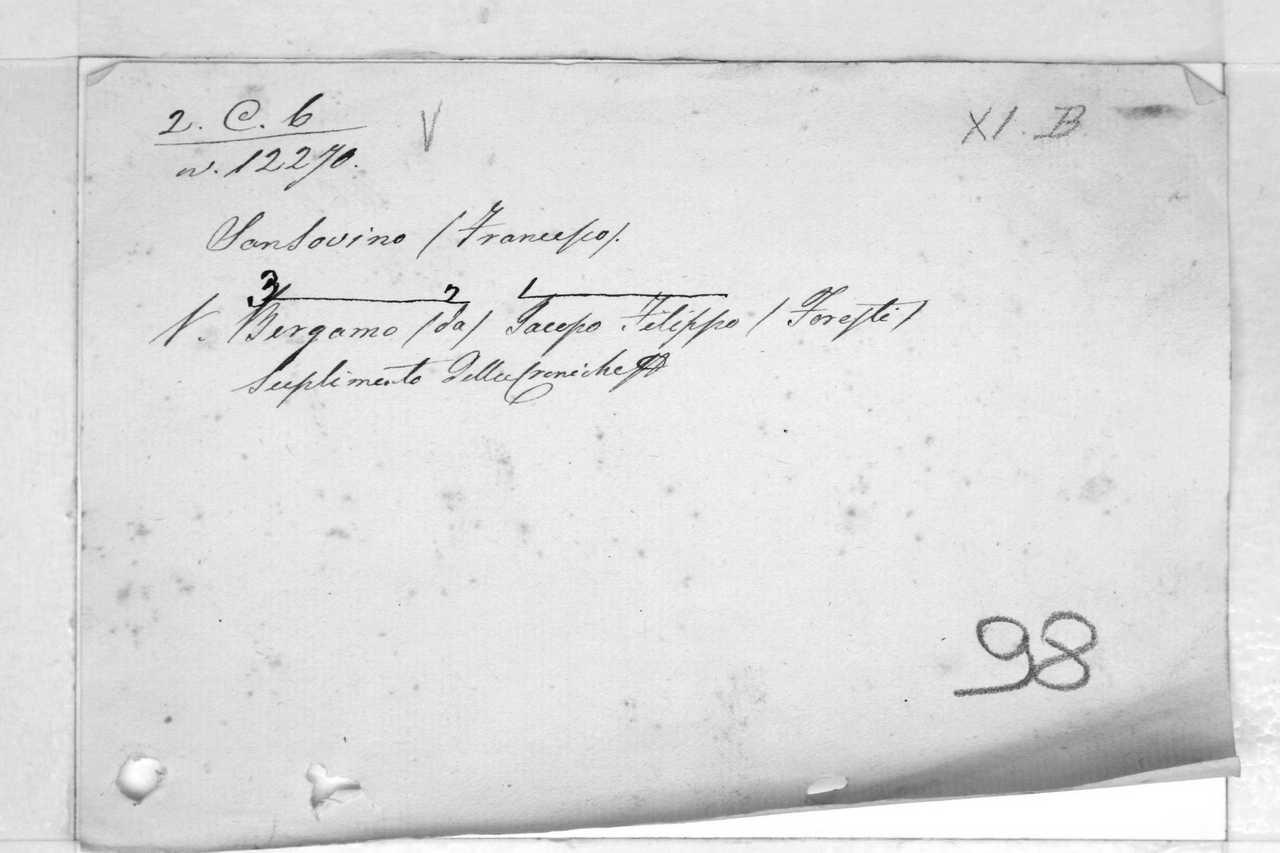 2. C. 6 V XI. B
n. 12270.
Sansovino (Francesco).
3 2 1
V. Bergamo (da) Jacopo Filippo (Foresti)
Suplimento delle Croniche
98